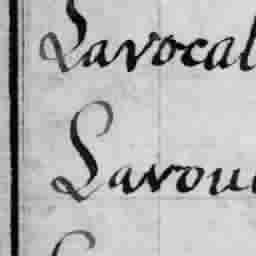 Lavocal
Lavou